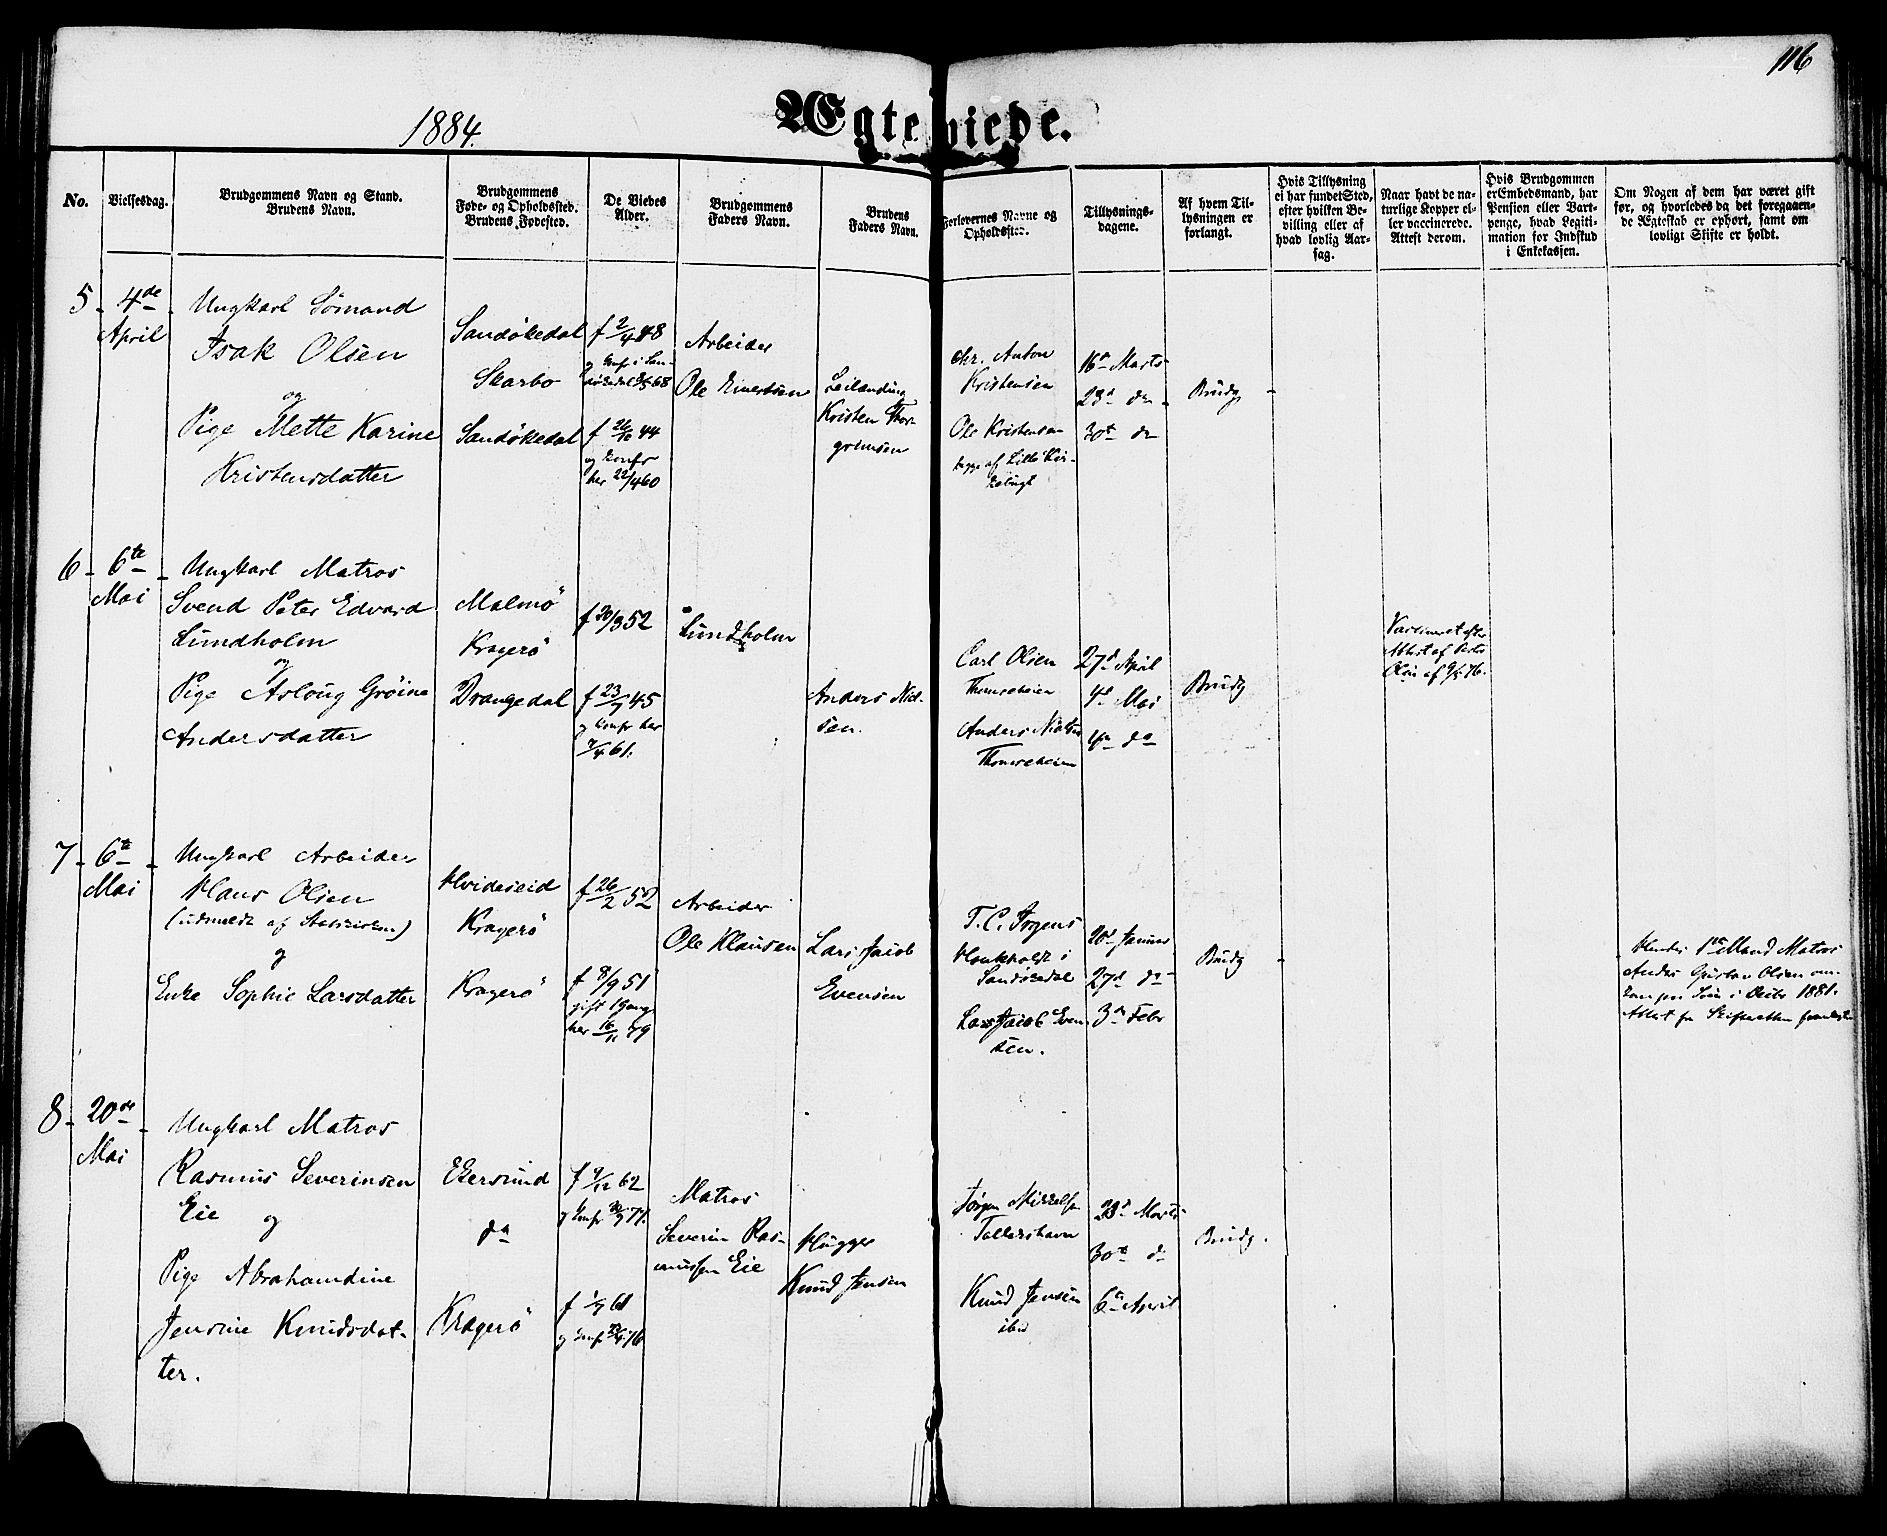 116
1884.
Ægteviede.
No.
Vielsesdag.
Brudgommens Navn og Stand.
Brudens Navn.
Brudgommens
Føde- og Opholdssted.
Brudens Fødested.
De Viedes
Alder.
Brudgommens
Faders Navn.
Brudens
Faders Navn.
Forlovernes Navne og
Opholdssted.
Tillysnings-
dagene.
Af hvem Til-
lysningen er
forlangt.
Hvis Tillysning
ei har fundet Sted,
efter hvilken Be-
villing eller af
hvad lovlig Aar-
sag.
Naar havt de na-
turlige Kopper el-
ler vaccinerede.
Attest derom.
Hvis Brudgommen
er Embedsmand, har
Pension eller Vart-
penge, hvad Legiti-
mation for Indskud
i Enkekassen.
Om Nogen af dem har været gift
før, og hvorledes da det foregaaen-
de Ægteskab er ophørt, samt om
lovligt Skifte er holdt.
5 - 4de
April
Ungkarl Sömand
Isak Olsen
og
Pige Mette Karine
Kristensdatter
Sandökedal
Skarbo
Sandökedal
f 2/4 48
f 26/10 44
og konfr
her 22/4 60
Arbeider
Ole Einertsen
Leilænding
Kristen Thor-
grimsen
Chr. Anton
Kristensen
Ole Kristensen
begge af Lille Kir-
16de Marts
23d do
30te do
Brudg. -
6 - 6te
Mai
Ungkarl Matros
Svend Peter Edvard
Lundholm
og
Pige Asloug Gröine
Andersdatter
Malmö
Kragerö
Drangedal
f 20/8 52
f 23/7 45
og konfr her
7/4 61.
Lundholm
Anders Niel-
sen.
Carl Olsen
Anders Nielsen
27d April
4d Mai
do
Brudg
Vaccineret efter
Attest af
7 - 6te
Mai
Ungkarl Arbeider
Hans Olsen
(udmeldt af Statskirken)
og
Enke Sophie Larsdatter
Hvideseid
Kragerö
Kragerö
f 26/2 52
f 8/9 51
gift 1 Gang
her 16/11 79
Arbeider
Ole Klausen
Lars Jacob
Evensen
T. C.
i
Lars Jacob Even-
sen.
20d Januar
27d do
3de Febr
Brudg -
Hendes 1ste Mand Matros
Anders Gustav Olsen om-
kom paa Söen i Octbr 1881.
Attest fra Skifteretten
8 - 20de
Mai
Ungkarl Matros
Rasmus Severinsen
Eie og
Pige Abrahamdine
Jensine Knudsdat-
ter.
Ekersund
do
Kragerö
f 9/12 62
f 1/7 61
Matros
Severin Ras-
mussen Eie
Hugger
Knud Jensen
Jörgen Mikkelsen
Tallershavn
Knud Jensen
ibid
23d Marts
30te do
6te April
Brudg.